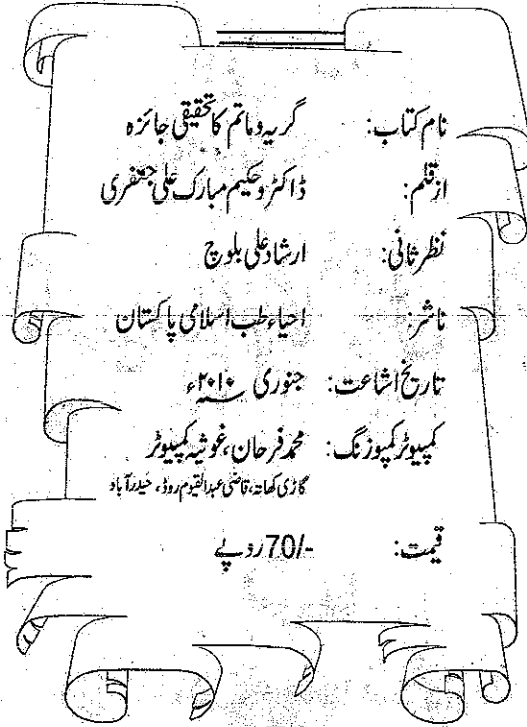 نام کتاب: گریہ و ماتم کا تحقیقی جائزہ
ازقلم: ڈاکٹر و حکیم مبارک علی جعفری
نظر ثانی: ارشاد علی بلوچ
ناشر: احیاء طب اسلامی پاکستان
تاریخ اشاعت: جنوری ۲۰۱۰ء
کمپیوٹر کمپوزنگ: محمد فرحان، غوثیہ کمپیوٹر
گاڑی کھاتہ، قاضی عبدالقیوم روڈ، حیدرآباد
قیمت: 70/- روپے